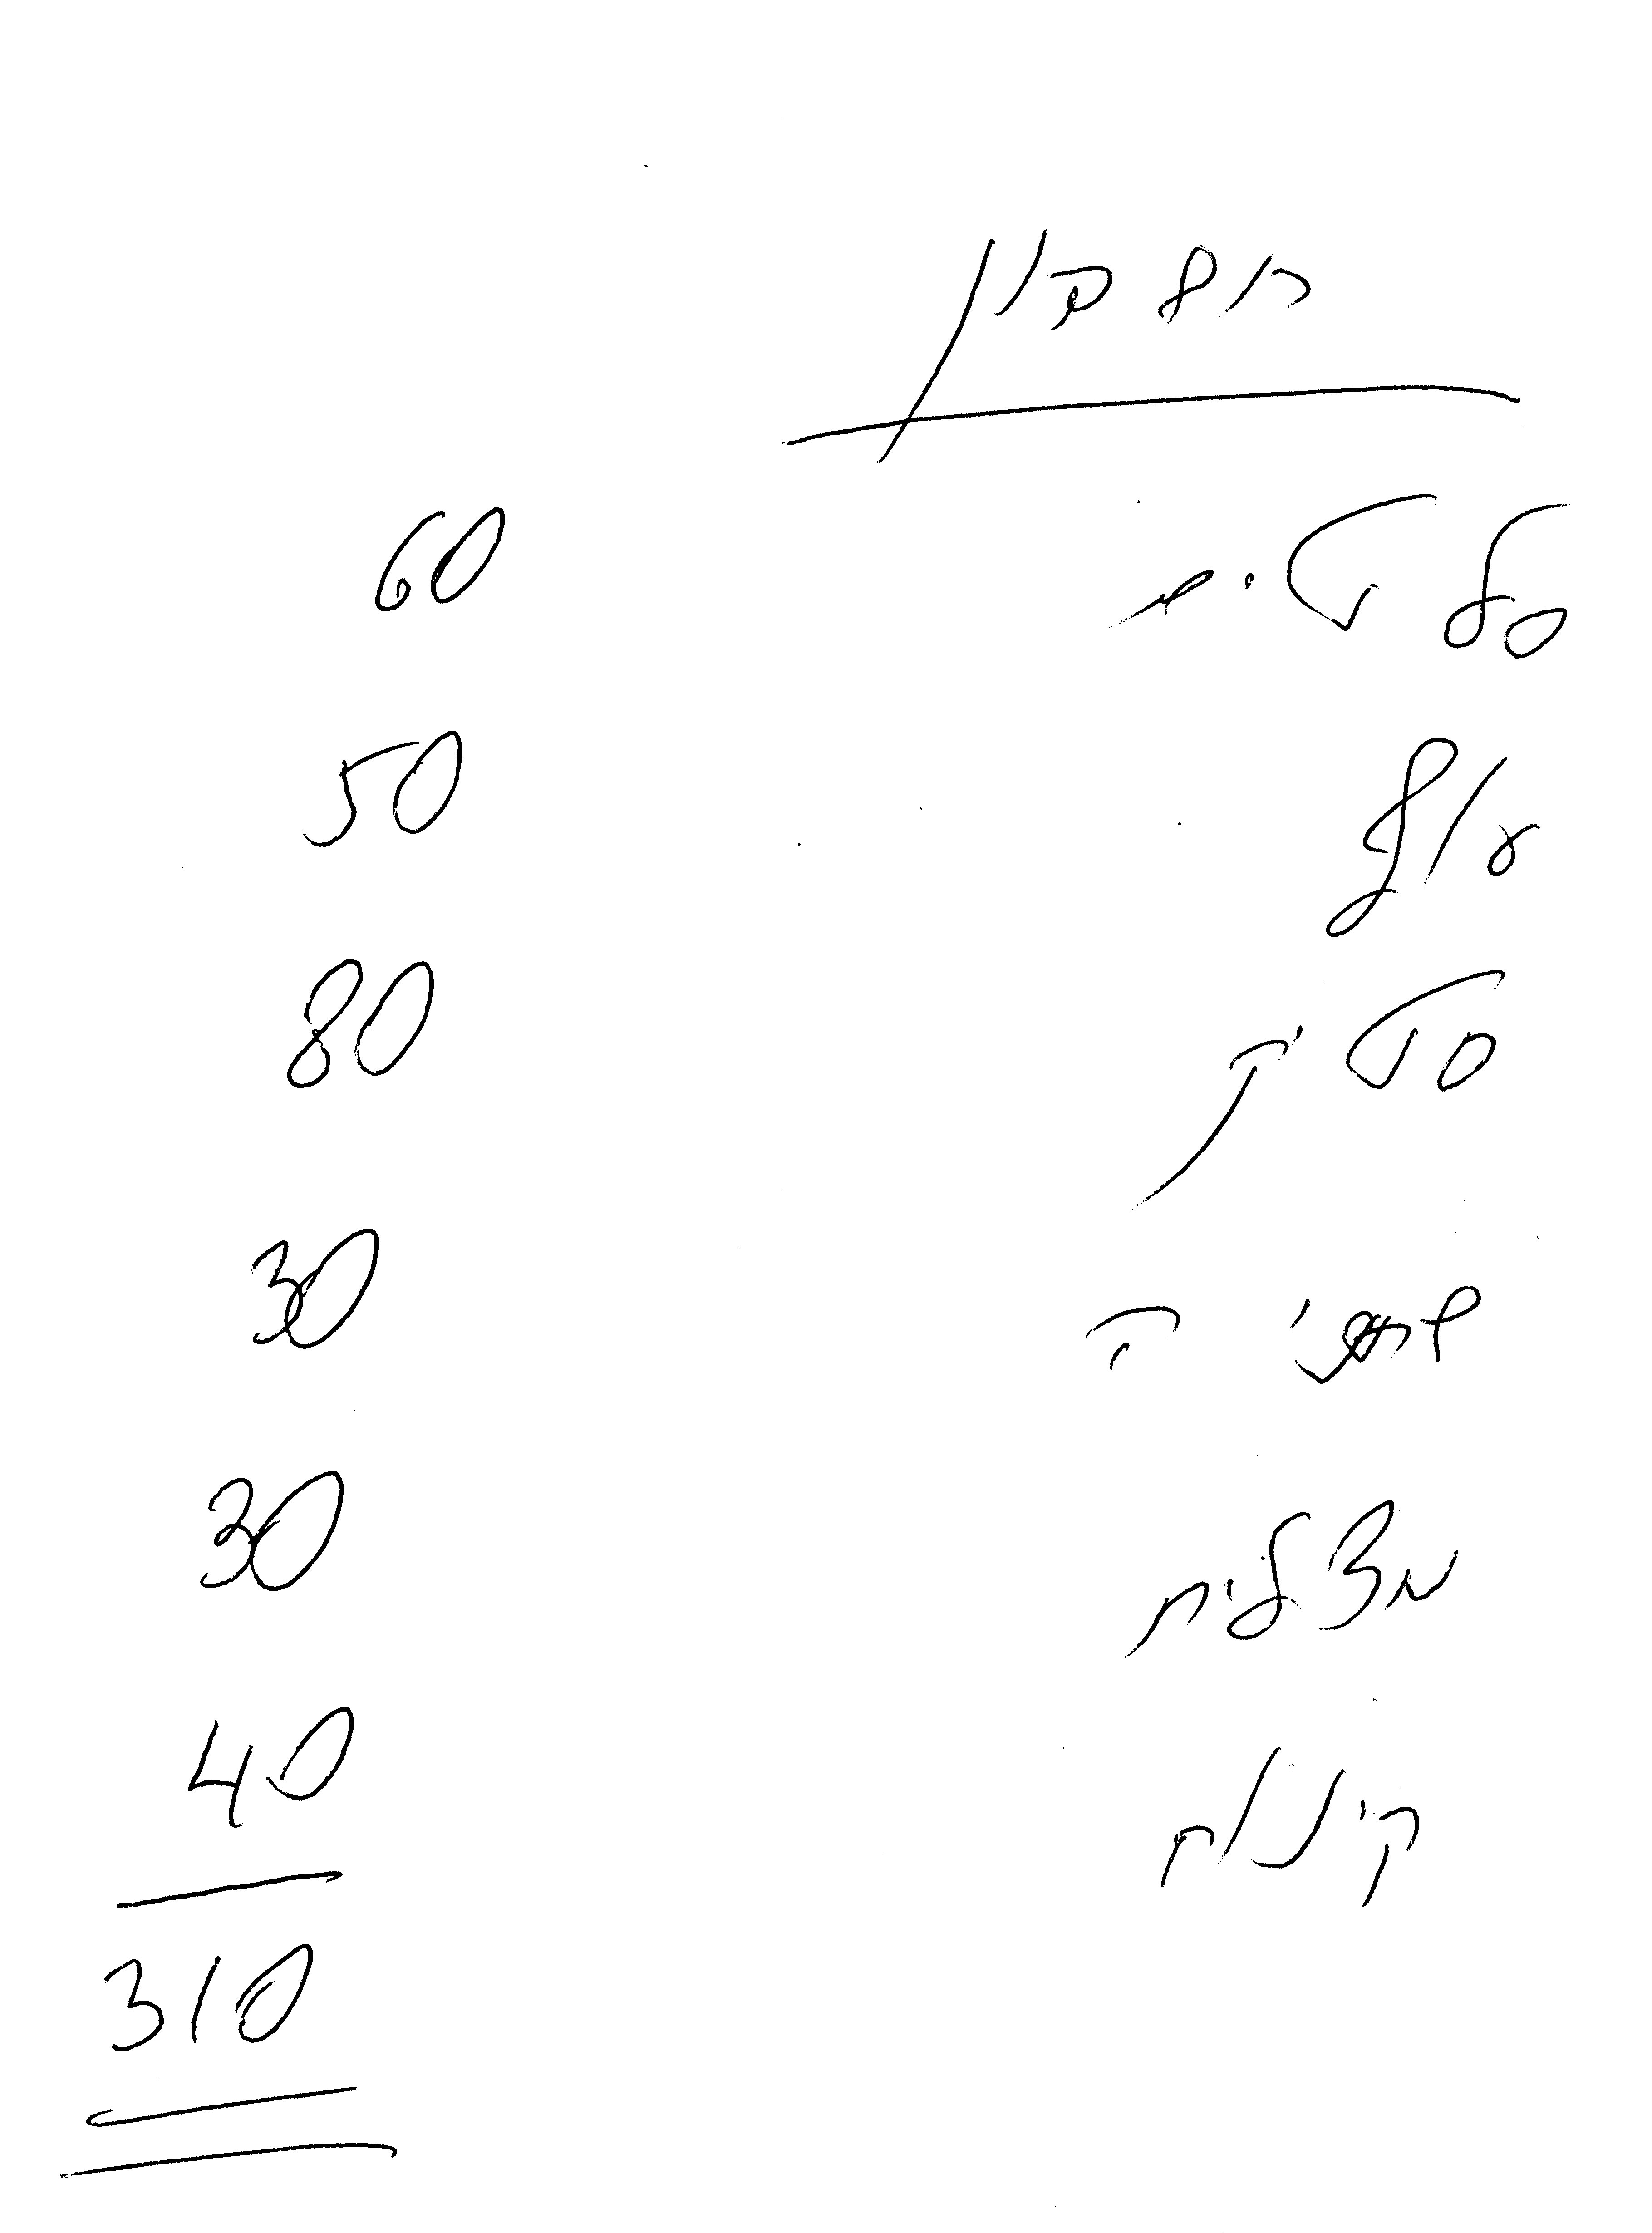 חשבון
סלטים 60
עוף 50
סטיק 80
שתיה 30
30
קינוח 40
310